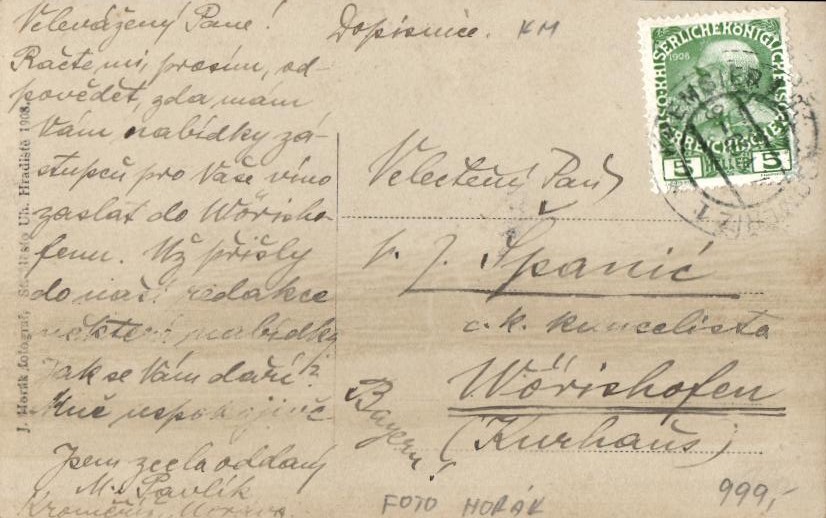 Velevážený Pane!
Račte mi, prosím, od-
povědět, zda mám
Vám nabídky zá-
stupců pro Vaše víno
zaslat do Wörisho-
fenu. Už přišly
do naší redakce
některé nabídky.
Jak se Vám daří?
Mně uspokojivě
Jsem zcela oddaný
M. Pavlík
Kroměříž, Morava.
J. Horák, fotograf, Staré Město Uh. Hradiště 1908.
Dopisnice. KM
KAISERLICHE KÖNIGLICHE
1908
5 HELLER 5
KREMSIER
Velectěný Pan
J. Španić
c. k. kancelista
Wörishofen
(Kurhaus)
Bayern!
FOTO HORÁK
999,-